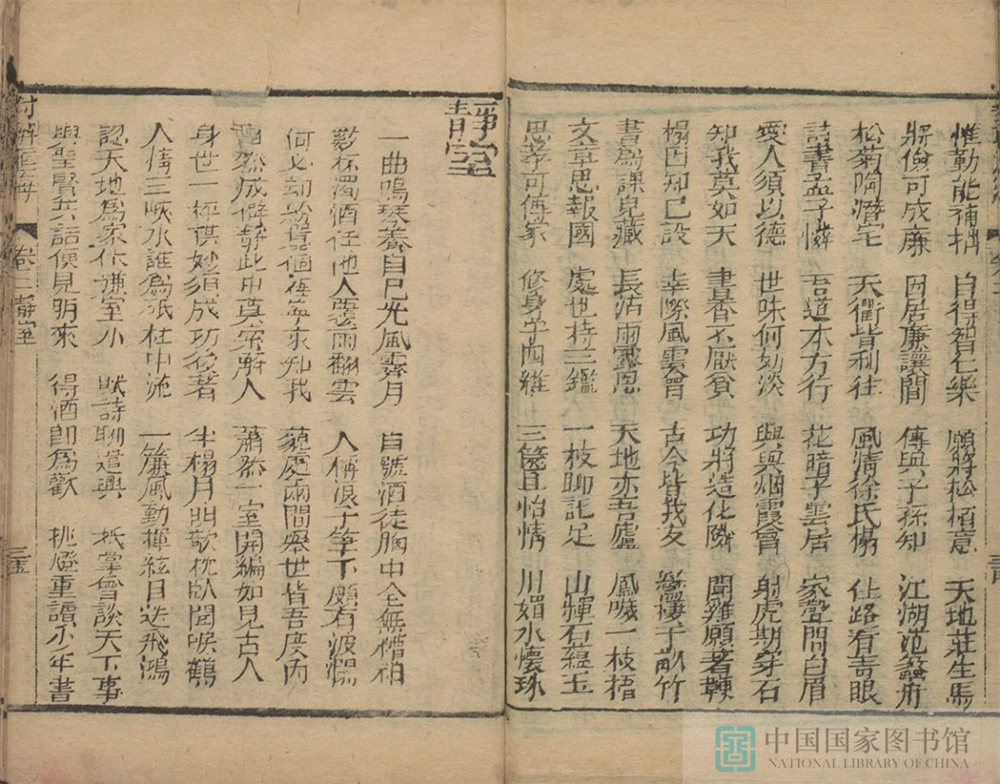 惟勤能補拙 自得智仁樂 願將松栢意 天地莊生馬
將儉可成廉 因居廉讓間 傳與子孫知 江湖范蠡舟
松菊陶潛宅 天衢皆利往 風清徐氏榻 仕路有青眼
詩書孟子憐 吾道本方行 花暗子雲居 家聲問白眉
愛人須以德 世味何妨淡 興與烟霞會 射虎期穿石
知我莫如天 書香不厭貧 功將造化隣 聞雞願著鞭
榻因知已設 幸際風雲會 古今皆我友 鸞棲千畝竹
書爲課兒藏 長沾雨露恩 天地亦吾廬 鳳噦一枝梧
文章思報國 處世持三鑑 一枝聊記足 山輝石蘊玉
忠孝可傳家 修身學四維 三篋且怡情 川媚水懷珠
靜室
一曲鳴琴養自已光風霽月 自號酒徒胸中全無糟粕
數杯濁酒任他人覆雨翻雲 人稱浪子筆下頗有波瀾
何必劫 個侮每來知我 藐處兩間舉世皆吾度內
成僻靜此中真索解人 蕭然一室開編如見古人
身世一枰棋妙須成功後著 半榻月明欹枕臥聞喚鶴
人情三峽水誰爲砥柱中流 一簾風動揮絃目送飛鴻
認天地爲家休嫌室小 賦詩聊遣興 抵掌會談天下事
與聖賢共話便見朋來 得酒即爲歡 挑燈重讀少年書
卷二靜室
三五
中国国家图书馆
NATIONAL LIBRARY OF CHINA